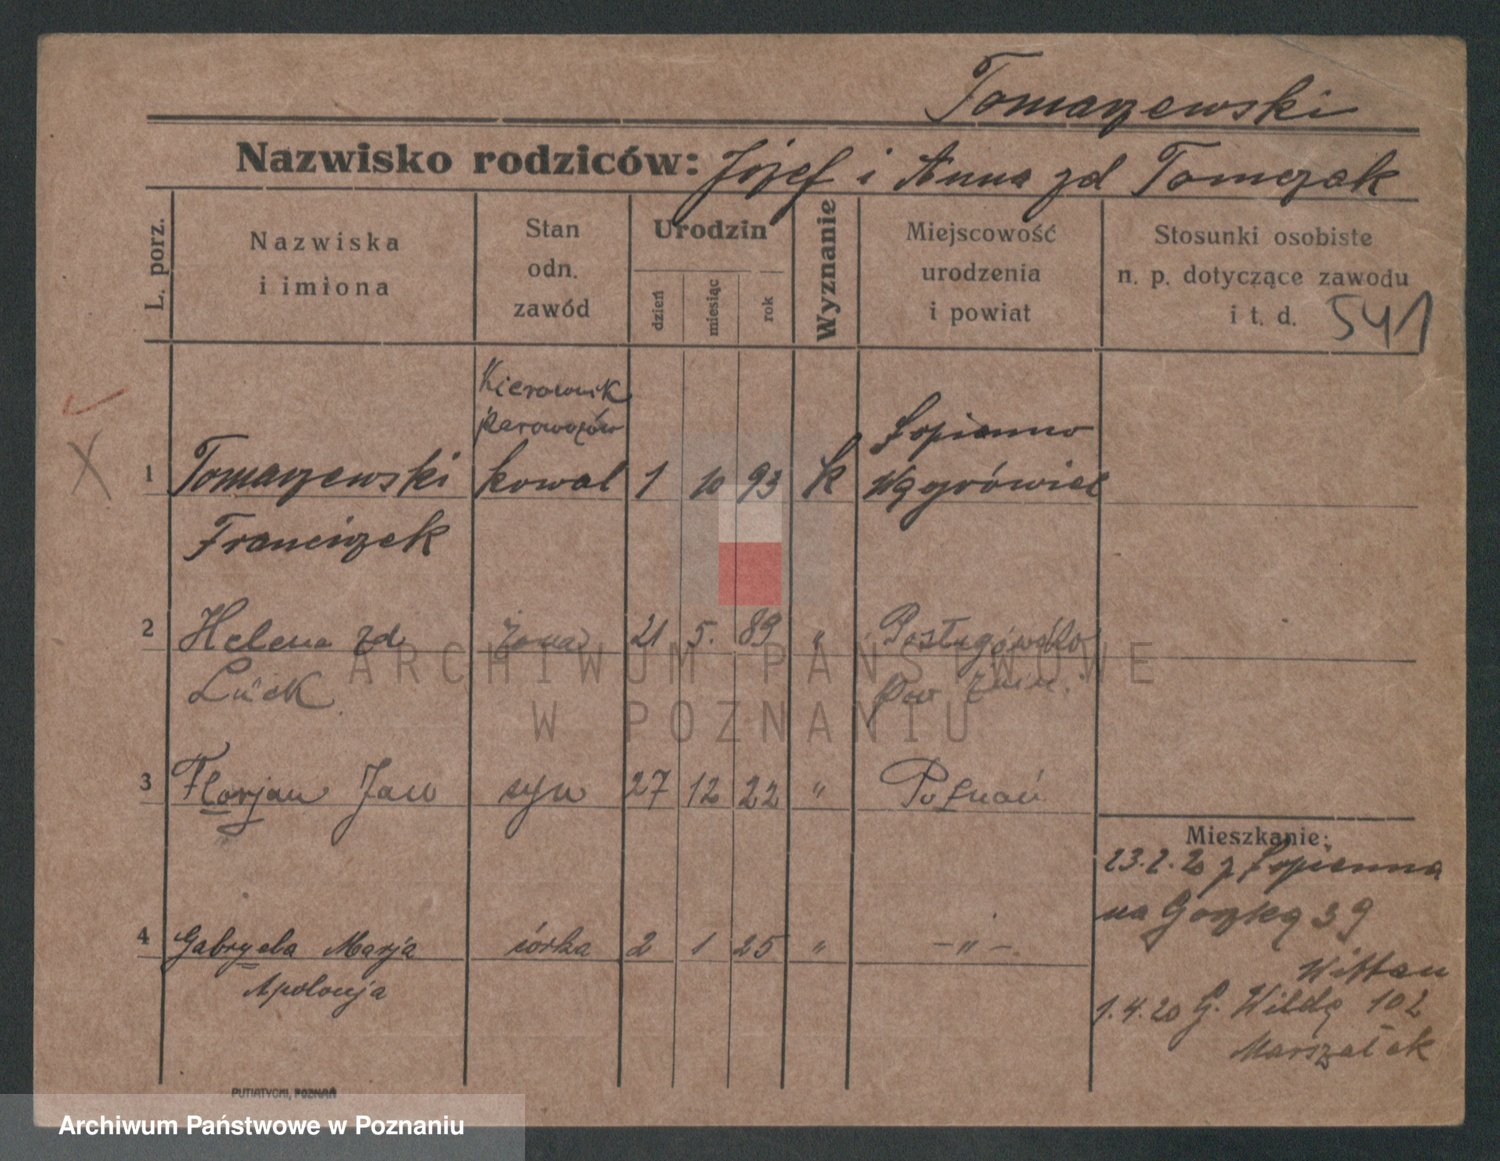 Tomaszewski
Nazwisko rodziców: Józef i Anna zd Tomczak
L. porz.
Nazwiska
i imiona
Stan
odn.
zawód
Urodzin
dzień
miesiąc
rok
Wyznanie
Miejscowość
urodzenia
i powiat
Stosunki osobiste
n. p. dotyczące zawodu
i t. d. 541
Kierownik
parowozów
X
1 Tomaszewski kowal 1 10 93 k Łopienno
Wągrówiec
Franciszek
2 Helena zd żona 21 5. 89 " Posługówko
Lück pow Żnin.
3 Florjan Jan syn 27 12 22 " Poznań
Mieszkanie:
23.2.20 z Łopienna
na Górską 39
Wittau
1.4.20 G. Wildę 102
Marszałek
4 Gabryela Marja córka 2 1 25 " - " -
Apolonja
PUTIATYCKI, POZNAŃ
ARCHIWUM PAŃSTWOWE
W POZNANIU
Archiwum Państwowe w Poznaniu